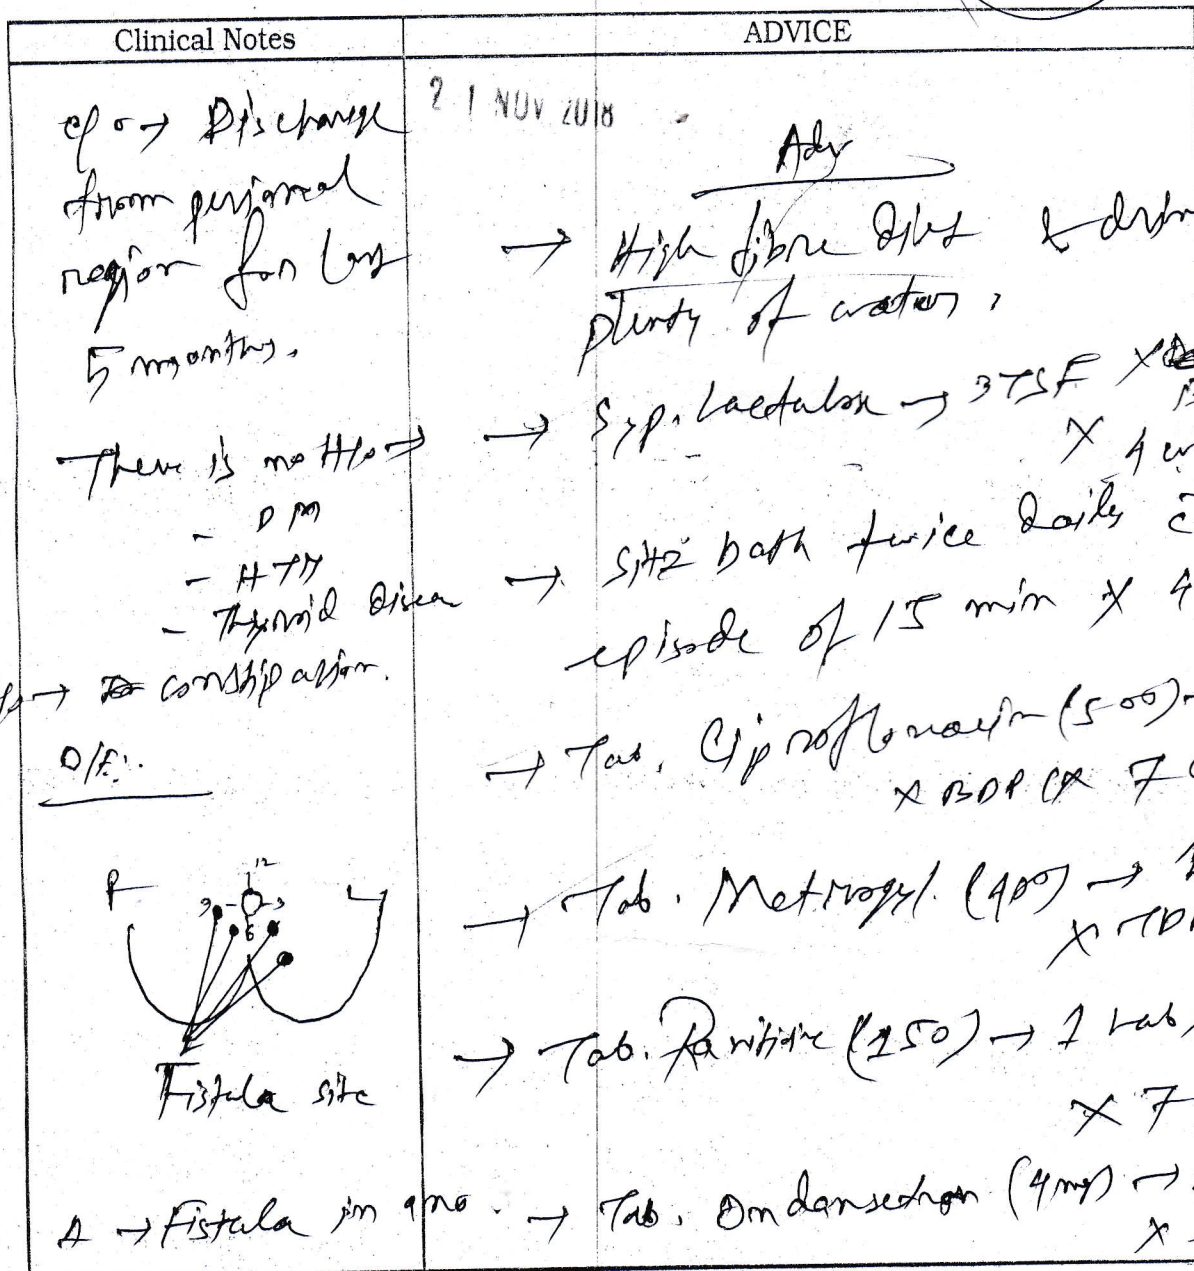 Clinical Notes
ADVICE
21 NOV 2018
c/o → Discharge
from perianal
region for last
5 months.
There is no H/o →
- DM
- HTN
- Thyroid disea
→ constipation.
O/E:-
R L
12
9 3
6
Fistula site
A → Fistula in ano.
Adv
→ High fibre diet &
plenty of water.
→ Syp. Lactulose → 3TSF X
X 4
→ Sitz bath twice daily c̄
episode of 15 min X 4
→ Tab. Ciprofloxacin (500)
X BDPC X 7
→ Tab. Metrogyl. (400) → 1
X TDP
→ Tab. Ranitidine (150) → 1 tab,
X 7
→ Tab. Ondansetron (4mg) →
X